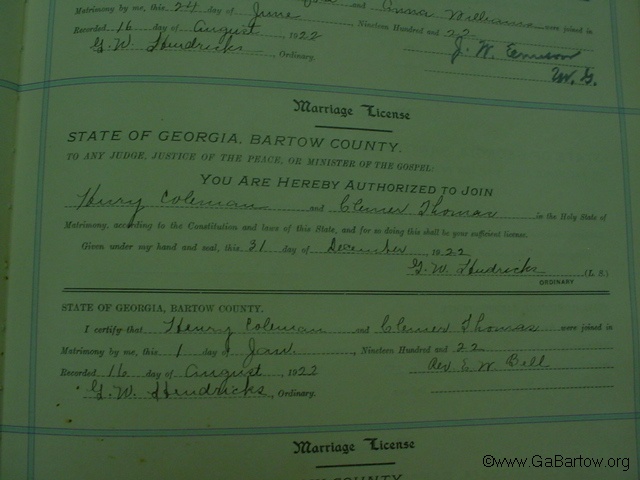 and Anna Williams were joined in
Matrimony by me, this 24 day of June Nineteen Hundred and 22
Recorded 16 day of August, 1922
G. W. Hendricks, Ordinary.
J. W.
M. G.
Marriage License
STATE OF GEORGIA, BARTOW COUNTY.
TO ANY JUDGE, JUSTICE OF THE PEACE, OR MINISTER OF THE GOSPEL:
YOU ARE HEREBY AUTHORIZED TO JOIN
Henry Coleman and Clemer Thomas in the Holy State of
Matrimony, according to the Constitution and laws of this State, and for so doing this shall be your sufficient license.
Given under my hand and seal, this 31 day of December, 1922
G. W. Hendricks (L. S.)
ORDINARY
STATE OF GEORGIA, BARTOW COUNTY.
I certify that Henry Coleman and Clemer Thomas were joined in
Matrimony by me, this 1 day of Jan., Nineteen Hundred and 22
Recorded 16 day of August, 1922
Rev. E. W. Bell
G. W. Hendricks, Ordinary.
Marriage License
COUNTY
©www.GaBartow.org